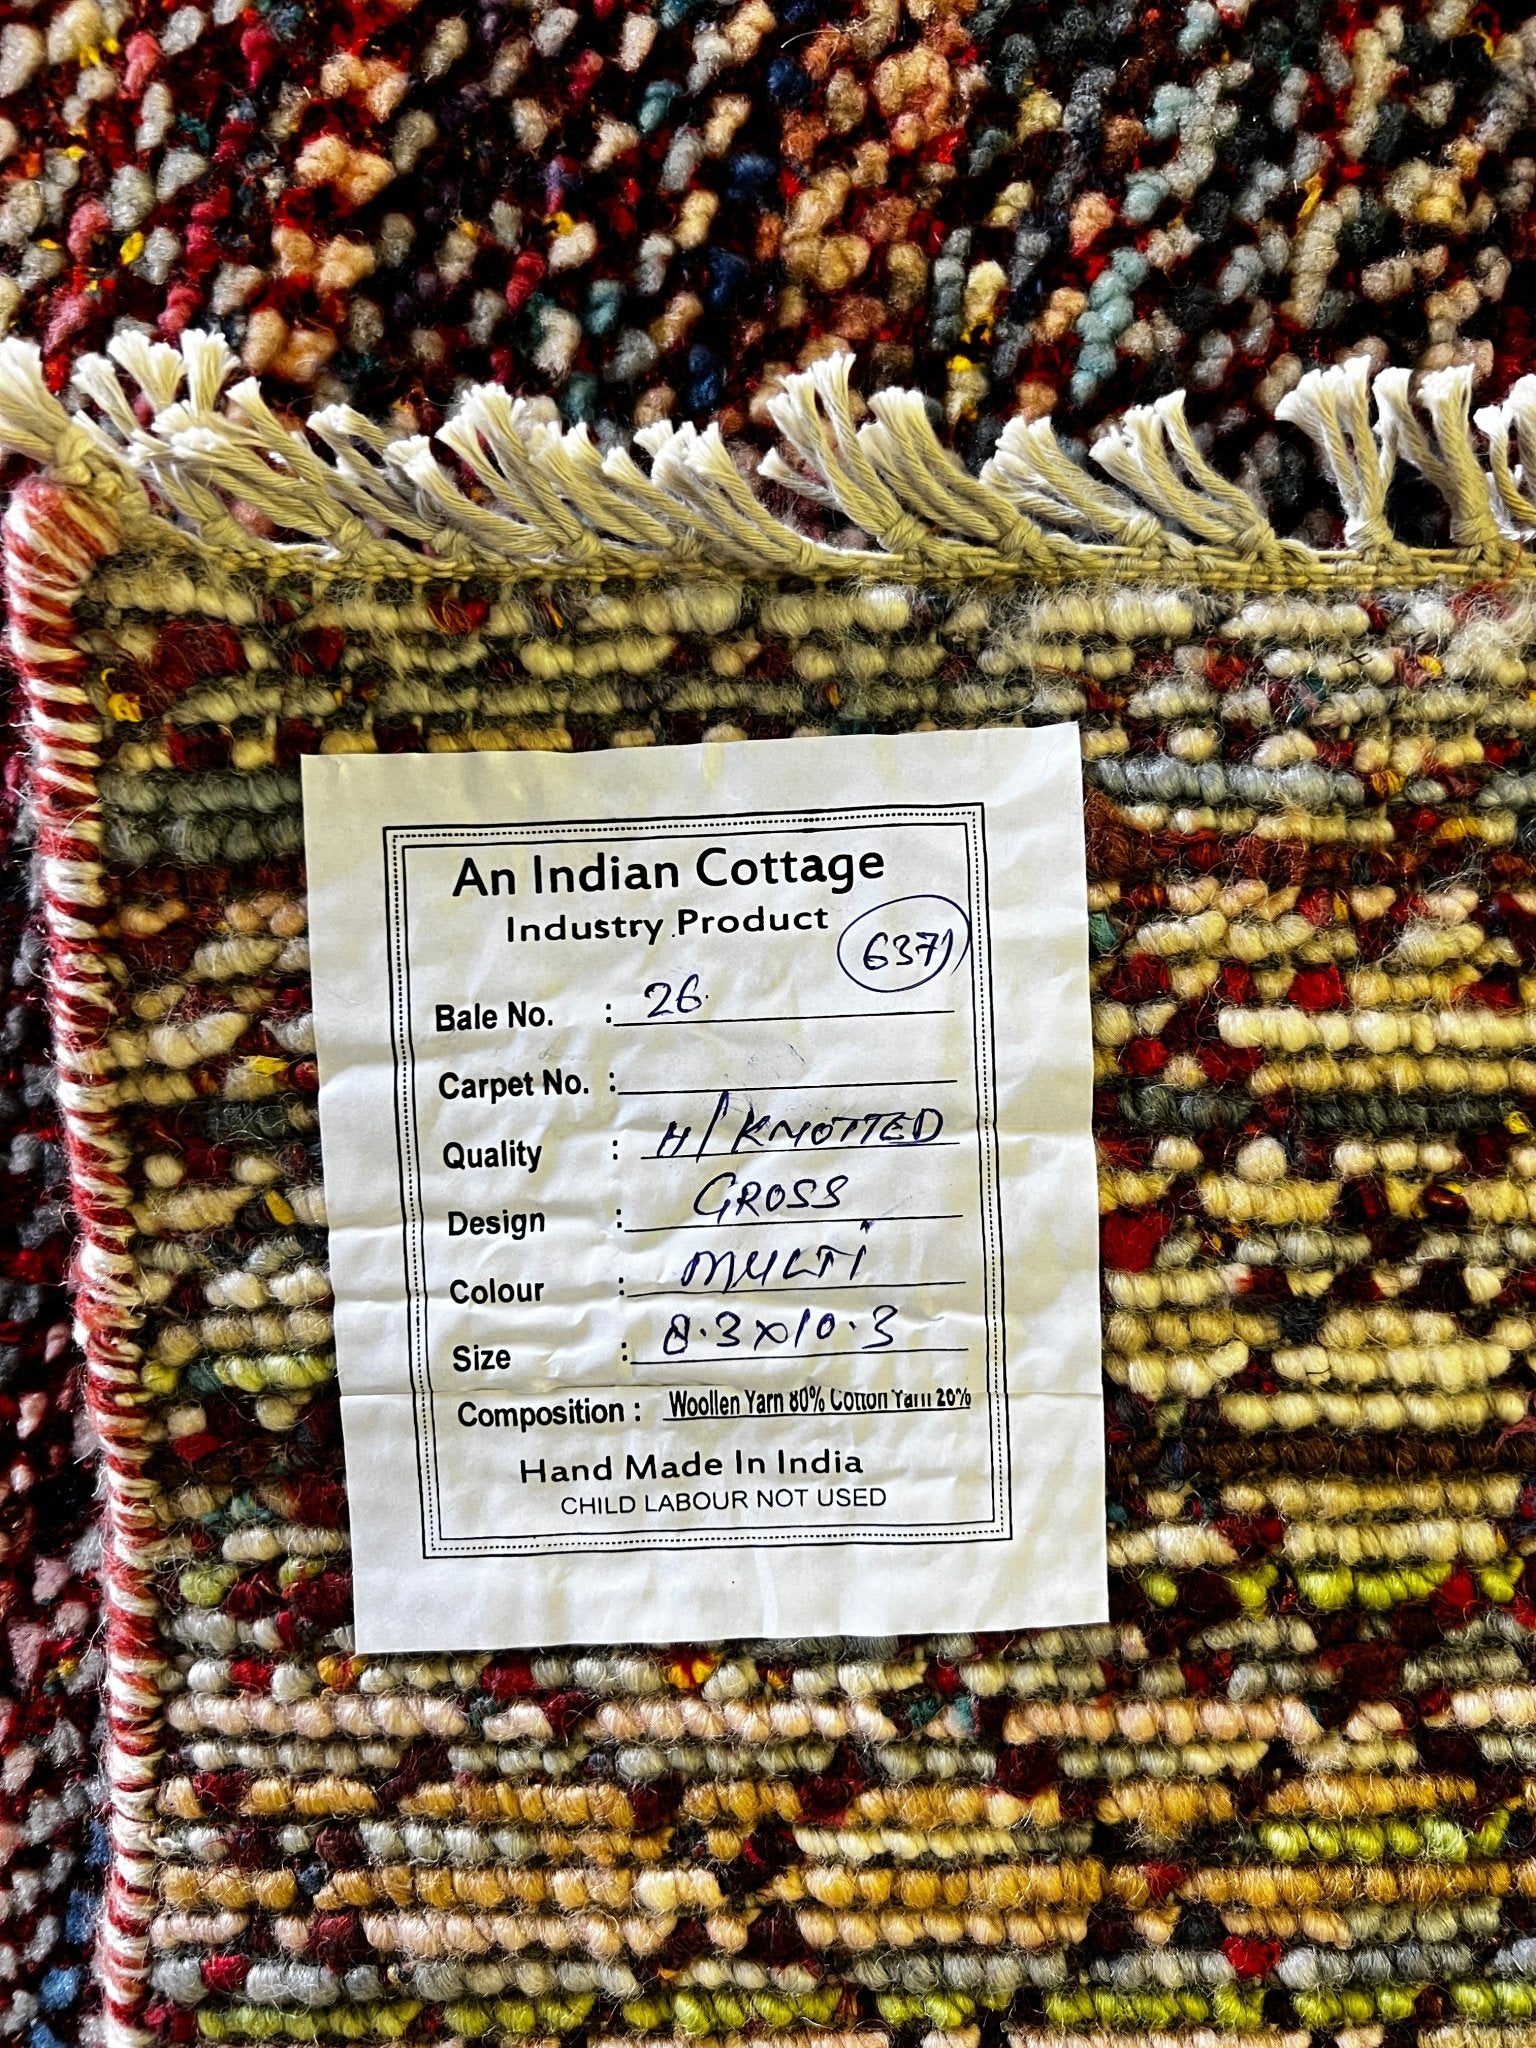 An Indian Cottage
Industry Product
6371
Bale No. : 26.
Carpet No. :
Quality : H/KNOTTED
Design : GROSS
Colour : MULTI
Size : 8.3x10.3
Composition : Woollen Yarn 80% Cotton Yarn 20%
Hand Made In India
CHILD LABOUR NOT USED